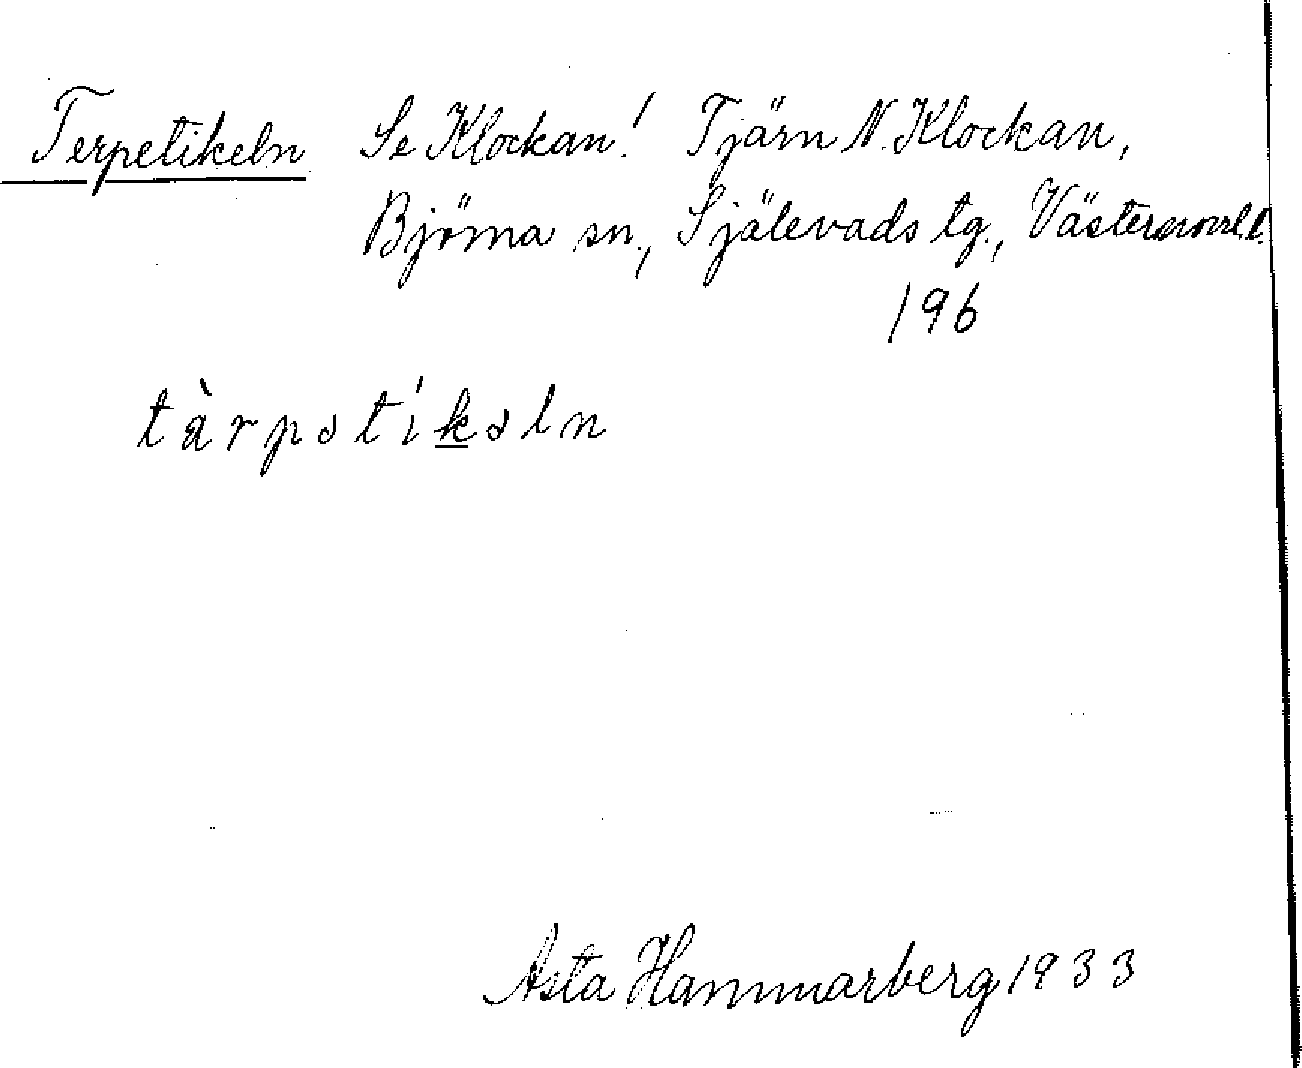 Terpetikeln Se Klockan! Tjärn N. Klockan,
Björna sn., Själevads tg., Västernorrl. l.
196
tàrpətíkəln
Asta Hammarberg 1933